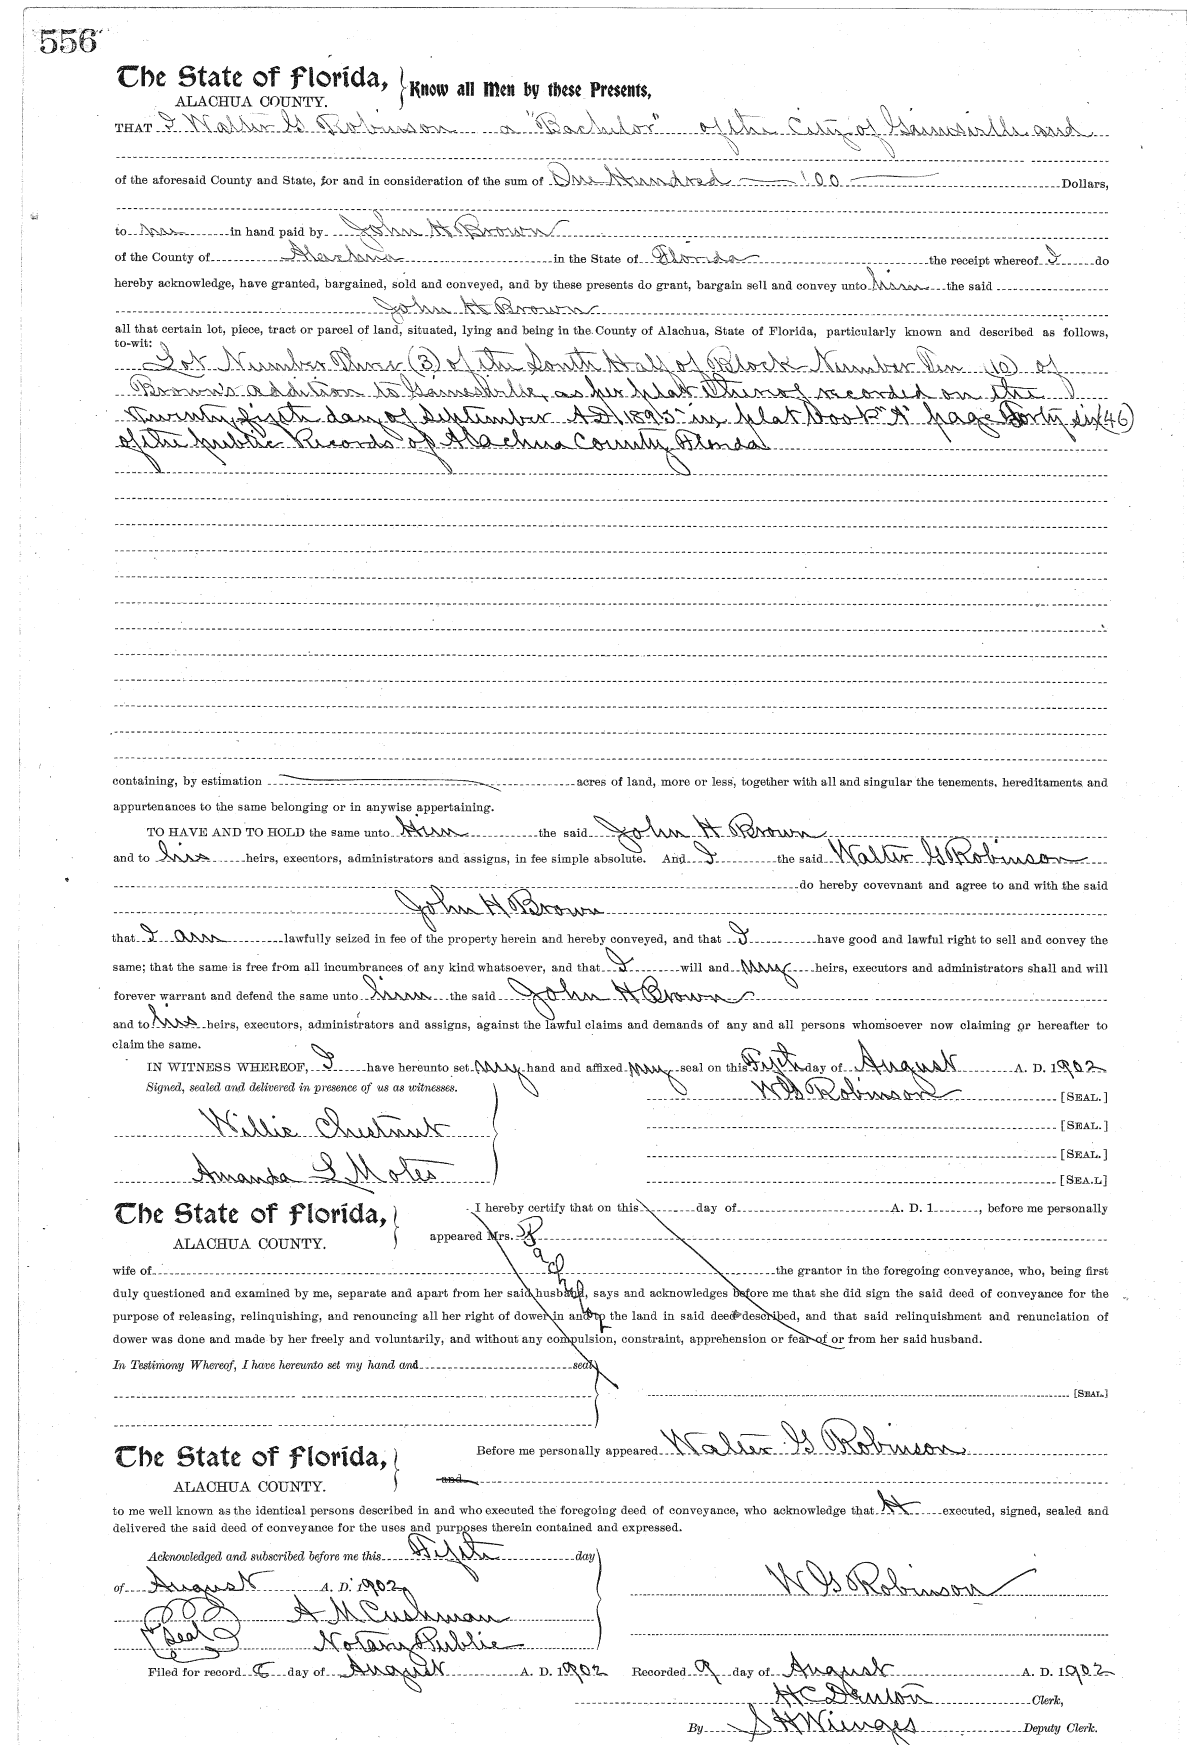 556
The State of Florida, Know all Men by these Presents,
ALACHUA COUNTY.
THAT I Walter G Robinson a "Bachelor" of the City of Gainesville and
of the aforesaid County and State, for and in consideration of the sum of One Hundred 00 Dollars,
to me in hand paid by John H Brown
of the County of Alachua in the State of Florida the receipt whereof I do
hereby acknowledge, have granted, bargained, sold and conveyed, and by these presents do grant, bargain sell and convey unto him the said
John H Brown
all that certain lot, piece, tract or parcel of land, situated, lying and being in the County of Alachua, State of Florida, particularly known and described as follows,
to-wit:
Lot Number Three (3) of the South Half of Block Number Ten (10) of
Brown's addition to Gainesville, as per plat thereof recorded on the
twenty fifth day of September AD, 1895 in plat Book "A" page Forty six (46)
of the public Records of Alachua County Florida
containing, by estimation acres of land, more or less, together with all and singular the tenements, hereditaments and
appurtenances to the same belonging or in anywise appertaining.
TO HAVE AND TO HOLD the same unto Him the said John H Brown
and to his heirs, executors, administrators and assigns, in fee simple absolute. And I the said Walter G Robinson
do hereby covevnant and agree to and with the said
John H Brown
that I am lawfully seized in fee of the property herein and hereby conveyed, and that I have good and lawful right to sell and convey the
same; that the same is free from all incumbrances of any kind whatsoever, and that I will and my heirs, executors and administrators shall and will
forever warrant and defend the same unto him the said John H Brown
and to his heirs, executors, administrators and assigns, against the lawful claims and demands of any and all persons whomsoever now claiming or hereafter to
claim the same.
IN WITNESS WHEREOF, I have hereunto set my hand and affixed my seal on this Fifth day of August A. D. 1902
Signed, sealed and delivered in presence of us as witnesses. W G Robinson [SEAL.]
Willie Chestnut [SEAL.]
[SEAL.]
Amanda L Motes [SEA.L]
The State of Florida, I hereby certify that on this day of A. D. 1 , before me personally
ALACHUA COUNTY. appeared Mrs. Bachelor
wife of the grantor in the foregoing conveyance, who, being first
duly questioned and examined by me, separate and apart from her said husband, says and acknowledges before me that she did sign the said deed of conveyance for the
purpose of releasing, relinquishing, and renouncing all her right of dower in and to the land in said deed described, and that said relinquishment and renunciation of
dower was done and made by her freely and voluntarily, and without any compulsion, constraint, apprehension or fear of or from her said husband.
In Testimony Whereof, I have hereunto set my hand and seal
[SEAL.]
The State of Florida, Before me personally appeared Walter G Robinson
ALACHUA COUNTY. and
to me well known as the identical persons described in and who executed the foregoing deed of conveyance, who acknowledge that H executed, signed, sealed and
delivered the said deed of conveyance for the uses and purposes therein contained and expressed.
Acknowledged and subscribed before me this Fifth day
of August A. D. 1902 W G Robinson
A M Cushman
Seal Notary Public
Filed for record day of August A. D. 1902 Recorded 9 day of August A. D. 1902
H C Denton Clerk,
By S H Wienges Deputy Clerk.